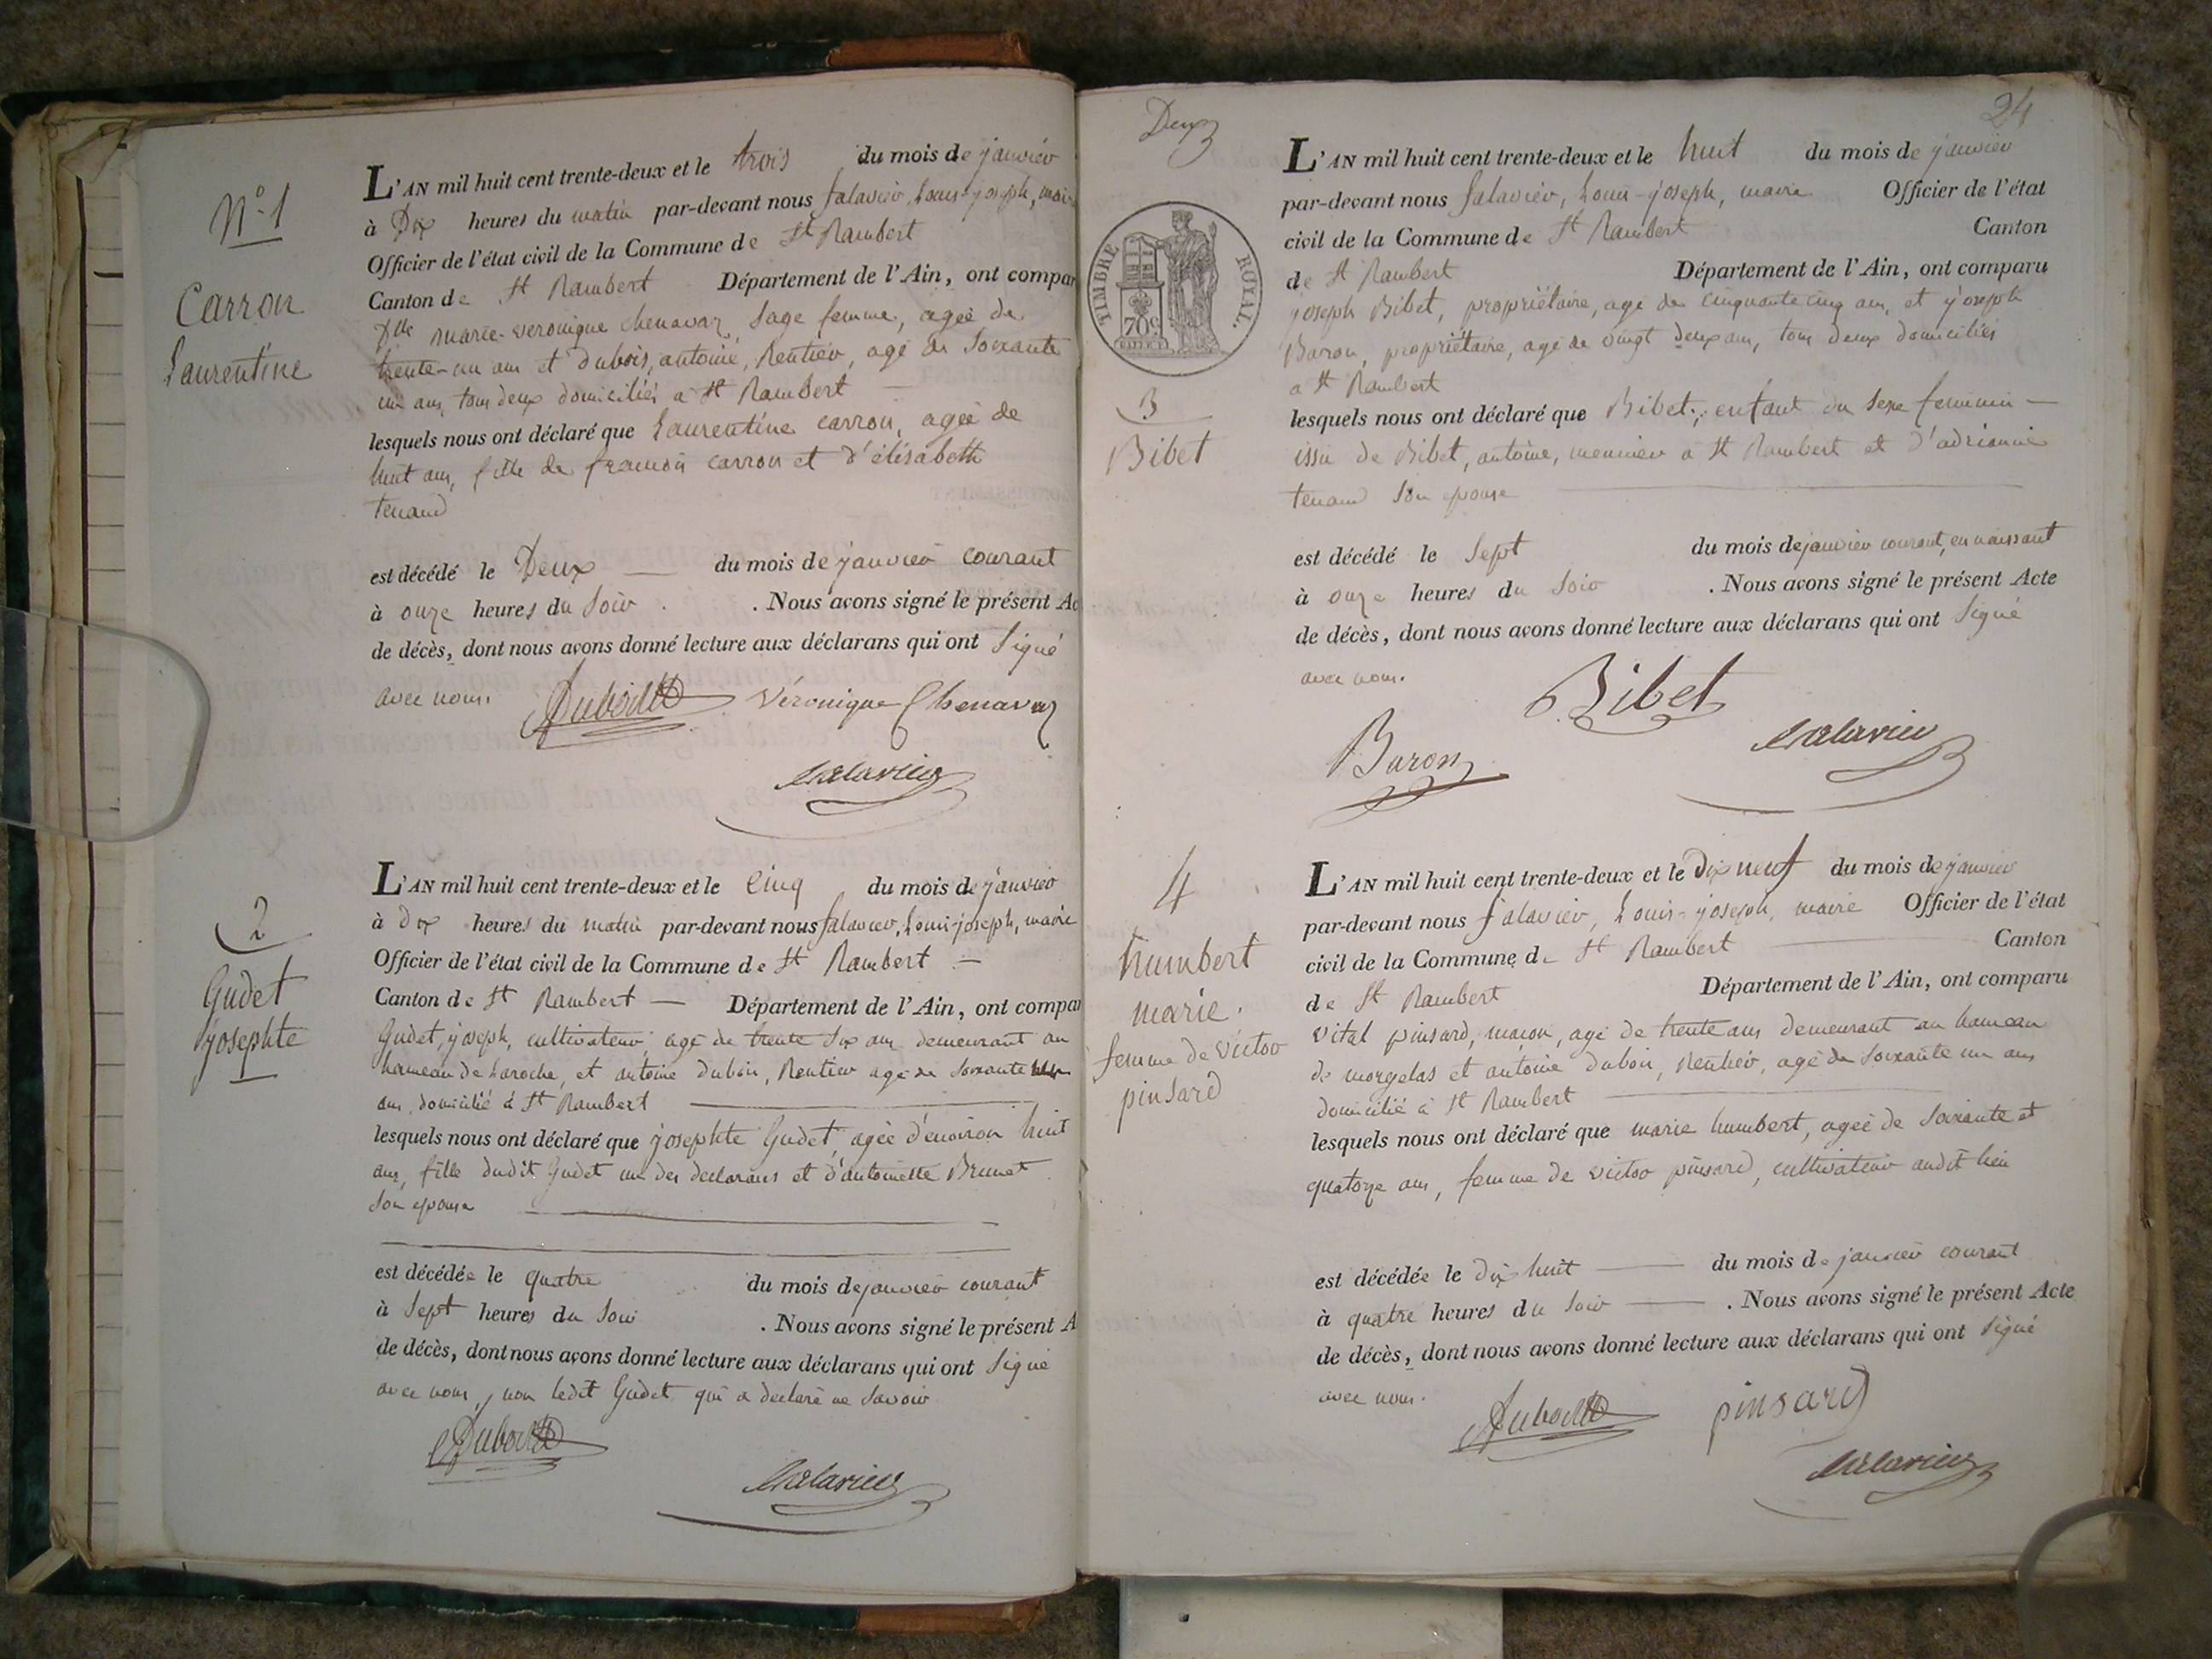 N° 1
Carron
Laurentine
L'AN mil huit cent trente-deux et le trois du mois de janvier
à Dix heures du matin par-devant nous Salavier, Louis-joseph, maire
Officier de l'état civil de la Commune de St Rambert
Canton de St Rambert Département de l'Ain, ont compar
Dlle marie-veronique chenavaz, sage femme, agée de
trente-un ans et dubois, antoine, Rentier, agé de soixante
un ans, tous deux domiciliés a St Rambert
lesquels nous ont déclaré que Laurentine carron, agée de
huit ans, fille de françois carron et d'élisabeth
tenand
est décédé le Deux du mois de janvier courant
à onze heures du soir. . Nous avons signé le présent Ac
de décès, dont nous avons donné lecture aux déclarans qui ont signé
avec nous.
Dubois Véronique Chenavaz
Salavier
2
Gudet
josephte
L'AN mil huit cent trente-deux et le cinq du mois de janvier
à dix heures du matin par-devant nous Salavier, Louis-joseph, maire
Officier de l'état civil de la Commune de St Rambert
Canton de St Rambert Département de l'Ain, ont compar
Gudet, joseph, cultivateur, agé de trente six ans demeurant au
hameau de Laroche, et antoine dubois, Rentier agé de soixante un
ans, domicilié à St Rambert
lesquels nous ont déclaré que josephte Gudet, agée d'environ huit
ans, fille dudit Gudet un des declarans et d'antoinette Brunet
son epouse
est décédée le quatre du mois de janvier courant
à sept heures du soir . Nous avons signé le présent A
de décès, dont nous avons donné lecture aux déclarans qui ont signé
avec nous, non ledit Gudet qui a declaré ne savoir
Dubois
Salavier
24
Deux
TIMBRE ROYAL.
70c
3
Bibet
L'AN mil huit cent trente-deux et le huit du mois de janvier
par-devant nous Salavier, Louis-joseph, maire Officier de l'état
civil de la Commune de St Rambert Canton
de St Rambert Département de l'Ain, ont comparu
joseph Bibet, propriétaire, agé de cinquante cinq ans, et joseph
Baron, propriétaire, agé de vingt deux ans, tous deux domiciliés
a St Rambert
lesquels nous ont déclaré que Bibet, enfant du sexe feminin
issu de Bibet, antoine, meunier a St Rambert et d'adrianne
tenand son epouse
est décédé le sept du mois de janvier courant, en naissant
à onze heures du soir . Nous avons signé le présent Acte
de décès, dont nous avons donné lecture aux déclarans qui ont signé
avec nous.
Bibet
Baron Salavier
4
humbert
marie.
femme de victor
pinsard
L'AN mil huit cent trente-deux et le Dix neuf du mois de janvier
par-devant nous Salavier, Louis-joseph, maire Officier de l'état
civil de la Commune de St Rambert Canton
de St Rambert Département de l'Ain, ont comparu
vital pinsard, macon, agé de trente ans demeurant au hameau
de morgelas et antoine dubois, Rentier, agé de soixante un ans
domicilié à St Rambert
lesquels nous ont déclaré que marie humbert, agée de soixante et
quatorze ans, femme de victor pinsard, cultivateur audit lieu
est décédée le dix huit du mois de janvier courant
à quatre heures du soir . Nous avons signé le présent Acte
de décès, dont nous avons donné lecture aux déclarans qui ont signé
avec nous.
Dubois pinsard
Salavier